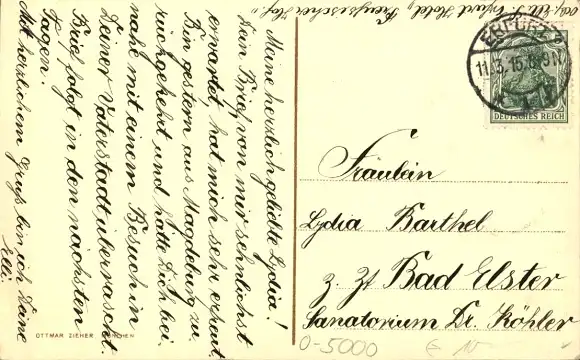 Abs. Elli Erfurt Hotel "Preussischer Hof."
Meine herzlich geliebte Lydia!
Dein Brief, von mir sehnlichst
erwartet, hat mich sehr erfreut.
Bin gestern aus Magdeburg zu-
rückgekehrt und hätte Dich bei-
nahe mit einem Besuch in
Deiner Vaterstadt überrascht.
Brief folgt in den nächsten
Tagen.
Mit herzlichem Gruß bin ich Deine
Elli
ERFURT
11.3.15.8-9N
DEUTSCHES REICH
Fräulein
Lydia Barthel
z. Zt Bad Elster
Sanatorium Dr. Köhler
0-5000
OTTMAR ZIEHER MÜNCHEN